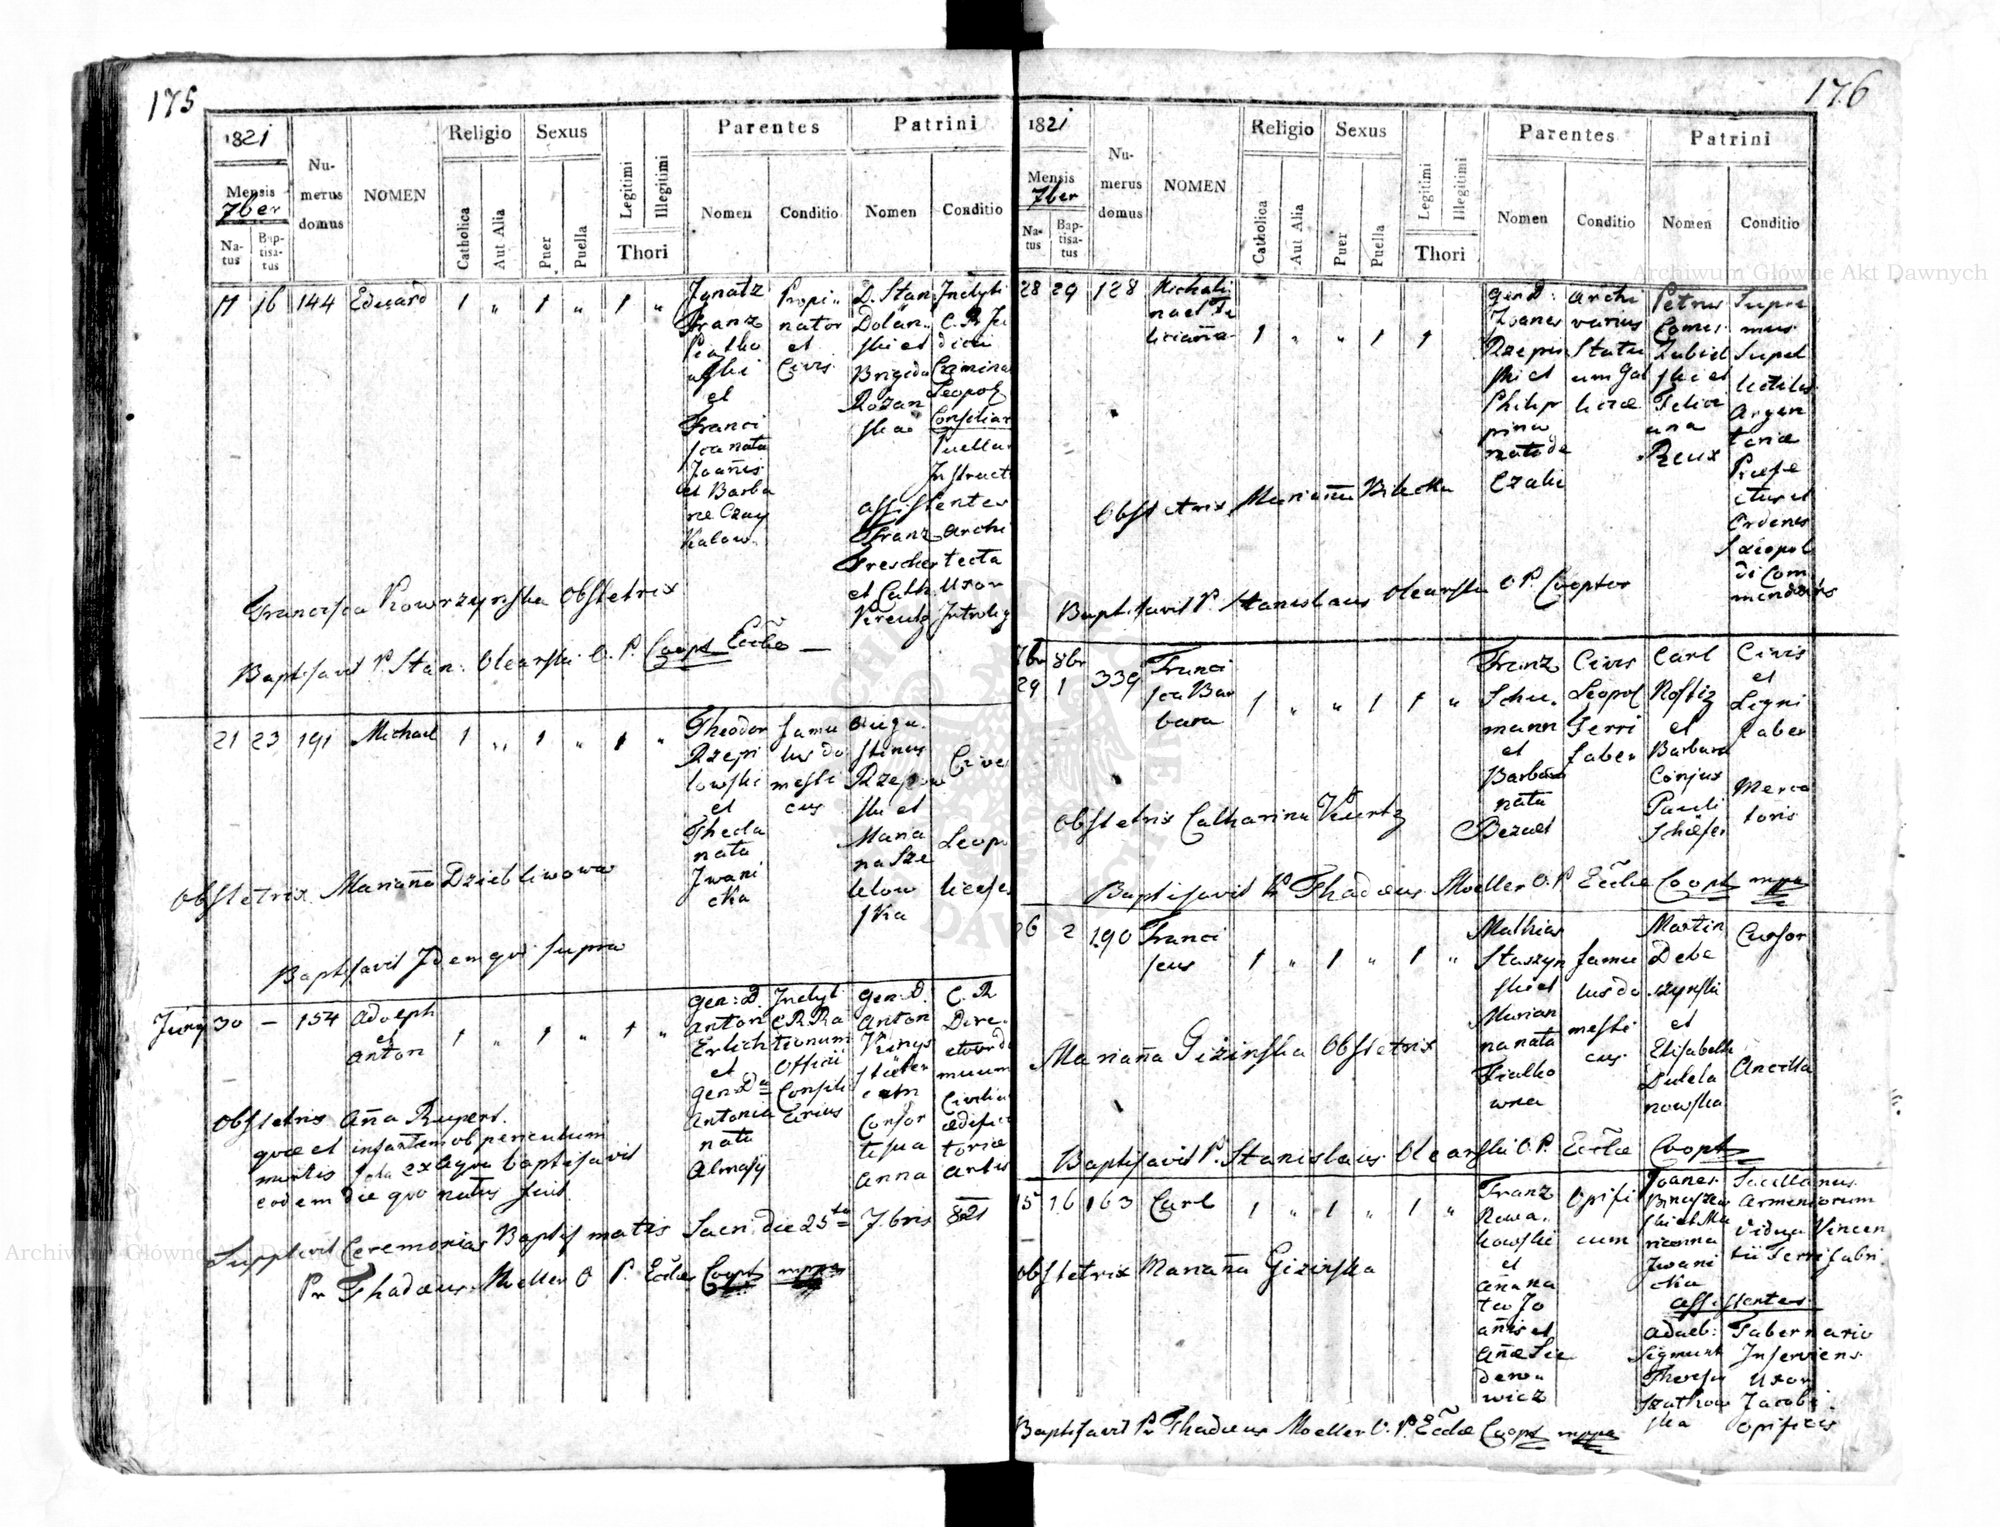 175
1821
Mensis
7ber
Na-
tus
Bap-
tisa-
tus
Nu-
merus
domus
NOMEN
Religio
Catholica
Aut Alia
Sexus
Puer
Puella
Legitimi
Illegitimi
Thori
Parentes
Nomen
Conditio
Patrini
Nomen
Conditio
11 16 144 Eduard 1 " 1 " 1 "
Ignatz
Franz
et
Franci
sca nata
Joañis
et Barba
Propi"
nator
et
Civis
D. Stan
Dolan"
ski et
Brigida
Rozan
ska
Inclyti
dicii
Crimina
Leopol
Consiliar
Puellar
Instruct
assistentes
Franz Archi
Drescher tecta
et Cath. Uxor
Kreutz Introlig
Francisca Kowrzynska Obstetrix
Baptisavit P. Stan: Olearski O. P. Coopt Eccłae
21 23 191 Michael 1 " 1 " 1 "
Theodor
Rzepi
lowski
et
Thecla
nata
Iwani
cka
famu
lus do
mesti
cus
Augu
stinus
Rzepow
ski et
Maria
na Sze
lelow
ska
Cives
Leopo
Obstetrix Mariaña Dziebliwowa
Baptisavit Idem qui supra
Juny 30 — 154 Adolph
et
Anton
1 " 1 " 1 "
Gen: D.
Anton
Erlich
et
Gen: Da
Antonia
nata
Almasy
Inclyt
C R Ra
tionum
Officii
Consili
arius
Gen. D.
Anton
Consor
te sua
Anna
C. R
Dire
ctor do
muum
Civiliu
ædifica
toriæ
Artis
Obstetrix Aña Rupert.
quæ et infantem ob periculum
mortis sola ex aqua baptisavit
eodem die quo natus fuit
Supplevit Ceremonias Baptismatis Sacri die 25ta 7bris 821
Pr Thadæus Moeller O P. Eccłae Coopt mppa
176
1821
Mensis
7ber
Na-
tus
Bap-
tisa-
tus
Nu-
merus
domus
NOMEN
Religio
Catholica
Aut Alia
Sexus
Puer
Puella
Legitimi
Illegitimi
Thori
Parentes
Nomen
Conditio
Patrini
Nomen
Conditio
28 29 128
1 " " 1 1
Gen D:
Joanes
Rzepin
ski et
Philip
pina
nata de
Czaki
Archi
varius
Statu
um Gal
liciæ
Petrus
Comes
Zabiel
ski et
Felici
ana
Reux
Supre
mus
Supel
lectilis
Argen
tariæ
Præfe
ctus et
Ordines
Leopol
di Com
mendatis
Obstetrix Mariaña Bilecka
Baptisavit P. Stanislaus Olearski O P. Cooptor
7br 8br
29 1 339 Franci
sca Bar
bara
1 " " 1 1 "
Franz
Schu
mann
et
Barbara
nata
Bezael
Civis
Leopol
Ferri
faber
Carl
Nostiz
et
Barbara
Conjux
Pauli
Schæfer
Civis
et
Legni
faber
Merca
toris
Obstetrix Catharina Kurtz
Baptisavit Pr Thadæus Moeller O. P Eccłæ Coopt mppa
26 2 190 Franci
scus
1 " 1 " 1 "
Mathias
Staszyn
ski et
Marian
na nata
Fialko
wna
famu
lus do
mesti
cus
Martin
Deba
szynski
et
Elisabeth
Dulela
nowska
Cursor
Ancilla
Mariaña Gizinska Obstetrix
Baptisavit P. Stanislaus Olearski O. P. Eccłæ Coopt
15 16 163 Carl 1 " 1 " 1 "
Franz
Nowa
kowski
et
Aña na
ta Jo
añis et
Añæ Sie
dero"
wicz
Opifi
cum
Joanes
ski et Ma
rianna
Iwani
cka
Sacellanus
Armenorum
Vidua Vincen
tii Ferri fabri
assistentes
Adalb: Tabernario
Sigmunt Inserviens
Theresa Uxor
Szatkow Jacobi
ska Opificis
Obstetrix Mariaña Gizinska
Baptisavit Pr Thadæus Moeller O. P. Eccłæ Coopt mppa
Archiwum Główne Akt Dawnych
Archiwum Główne Akt Dawnych